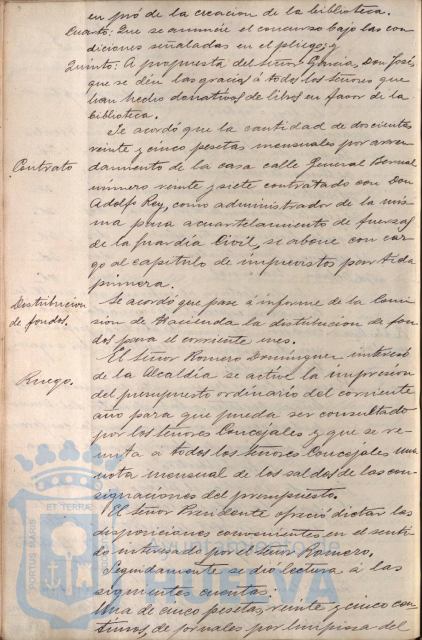 en pró de la creacion de la biblioteca.
Cuarto: Que se anuncie el concurso bajo las con
diciones señaladas en el pliego; y
Quinto: A propuesta del Señor García, Don José,
que se dén las gracias á todos los señores que
han hecho donativos de libros en favor de la
biblioteca.
Contrato
Se acordó que la cantidad de doscientas
veinte y cinco pesetas mensuales por arren
damiento de la casa calle General Bernal
número veinte y siete contratado con Don
Adolfo Rey, como administrador de la mis
ma para acuartelamiento de fuerzas
de la guardia Civil, se abone con car
go al capitulo de imprevistos partida
primera.
Destribucion
de fondos.
Se acordó que pase á informe de la Comi
sion de Hacienda la distribucion de fon
dos para el corriente mes.
Ruego.
El Señor Romero Dominguez interesó
de la Alcaldía se active la impresion
del presupuesto ordinario del corriente
año para que pueda ser consultado
por los señores Concejales y que se re
mita á todos los señores Concejales una
nota mensual de los saldos de las con
signaciones del presupuesto.
El Señor Presidente ofreció dictar las
disposiciones convenientes en el senti
do interesado por el Señor Romero.
Seguidamente se dió lectura á las
siguientes cuentas:
Una de cinco pesetas, veinte y cinco cen
timos, de jornales por limpieza del
PORTUS MARIS
ET TERRAE
HUELVA